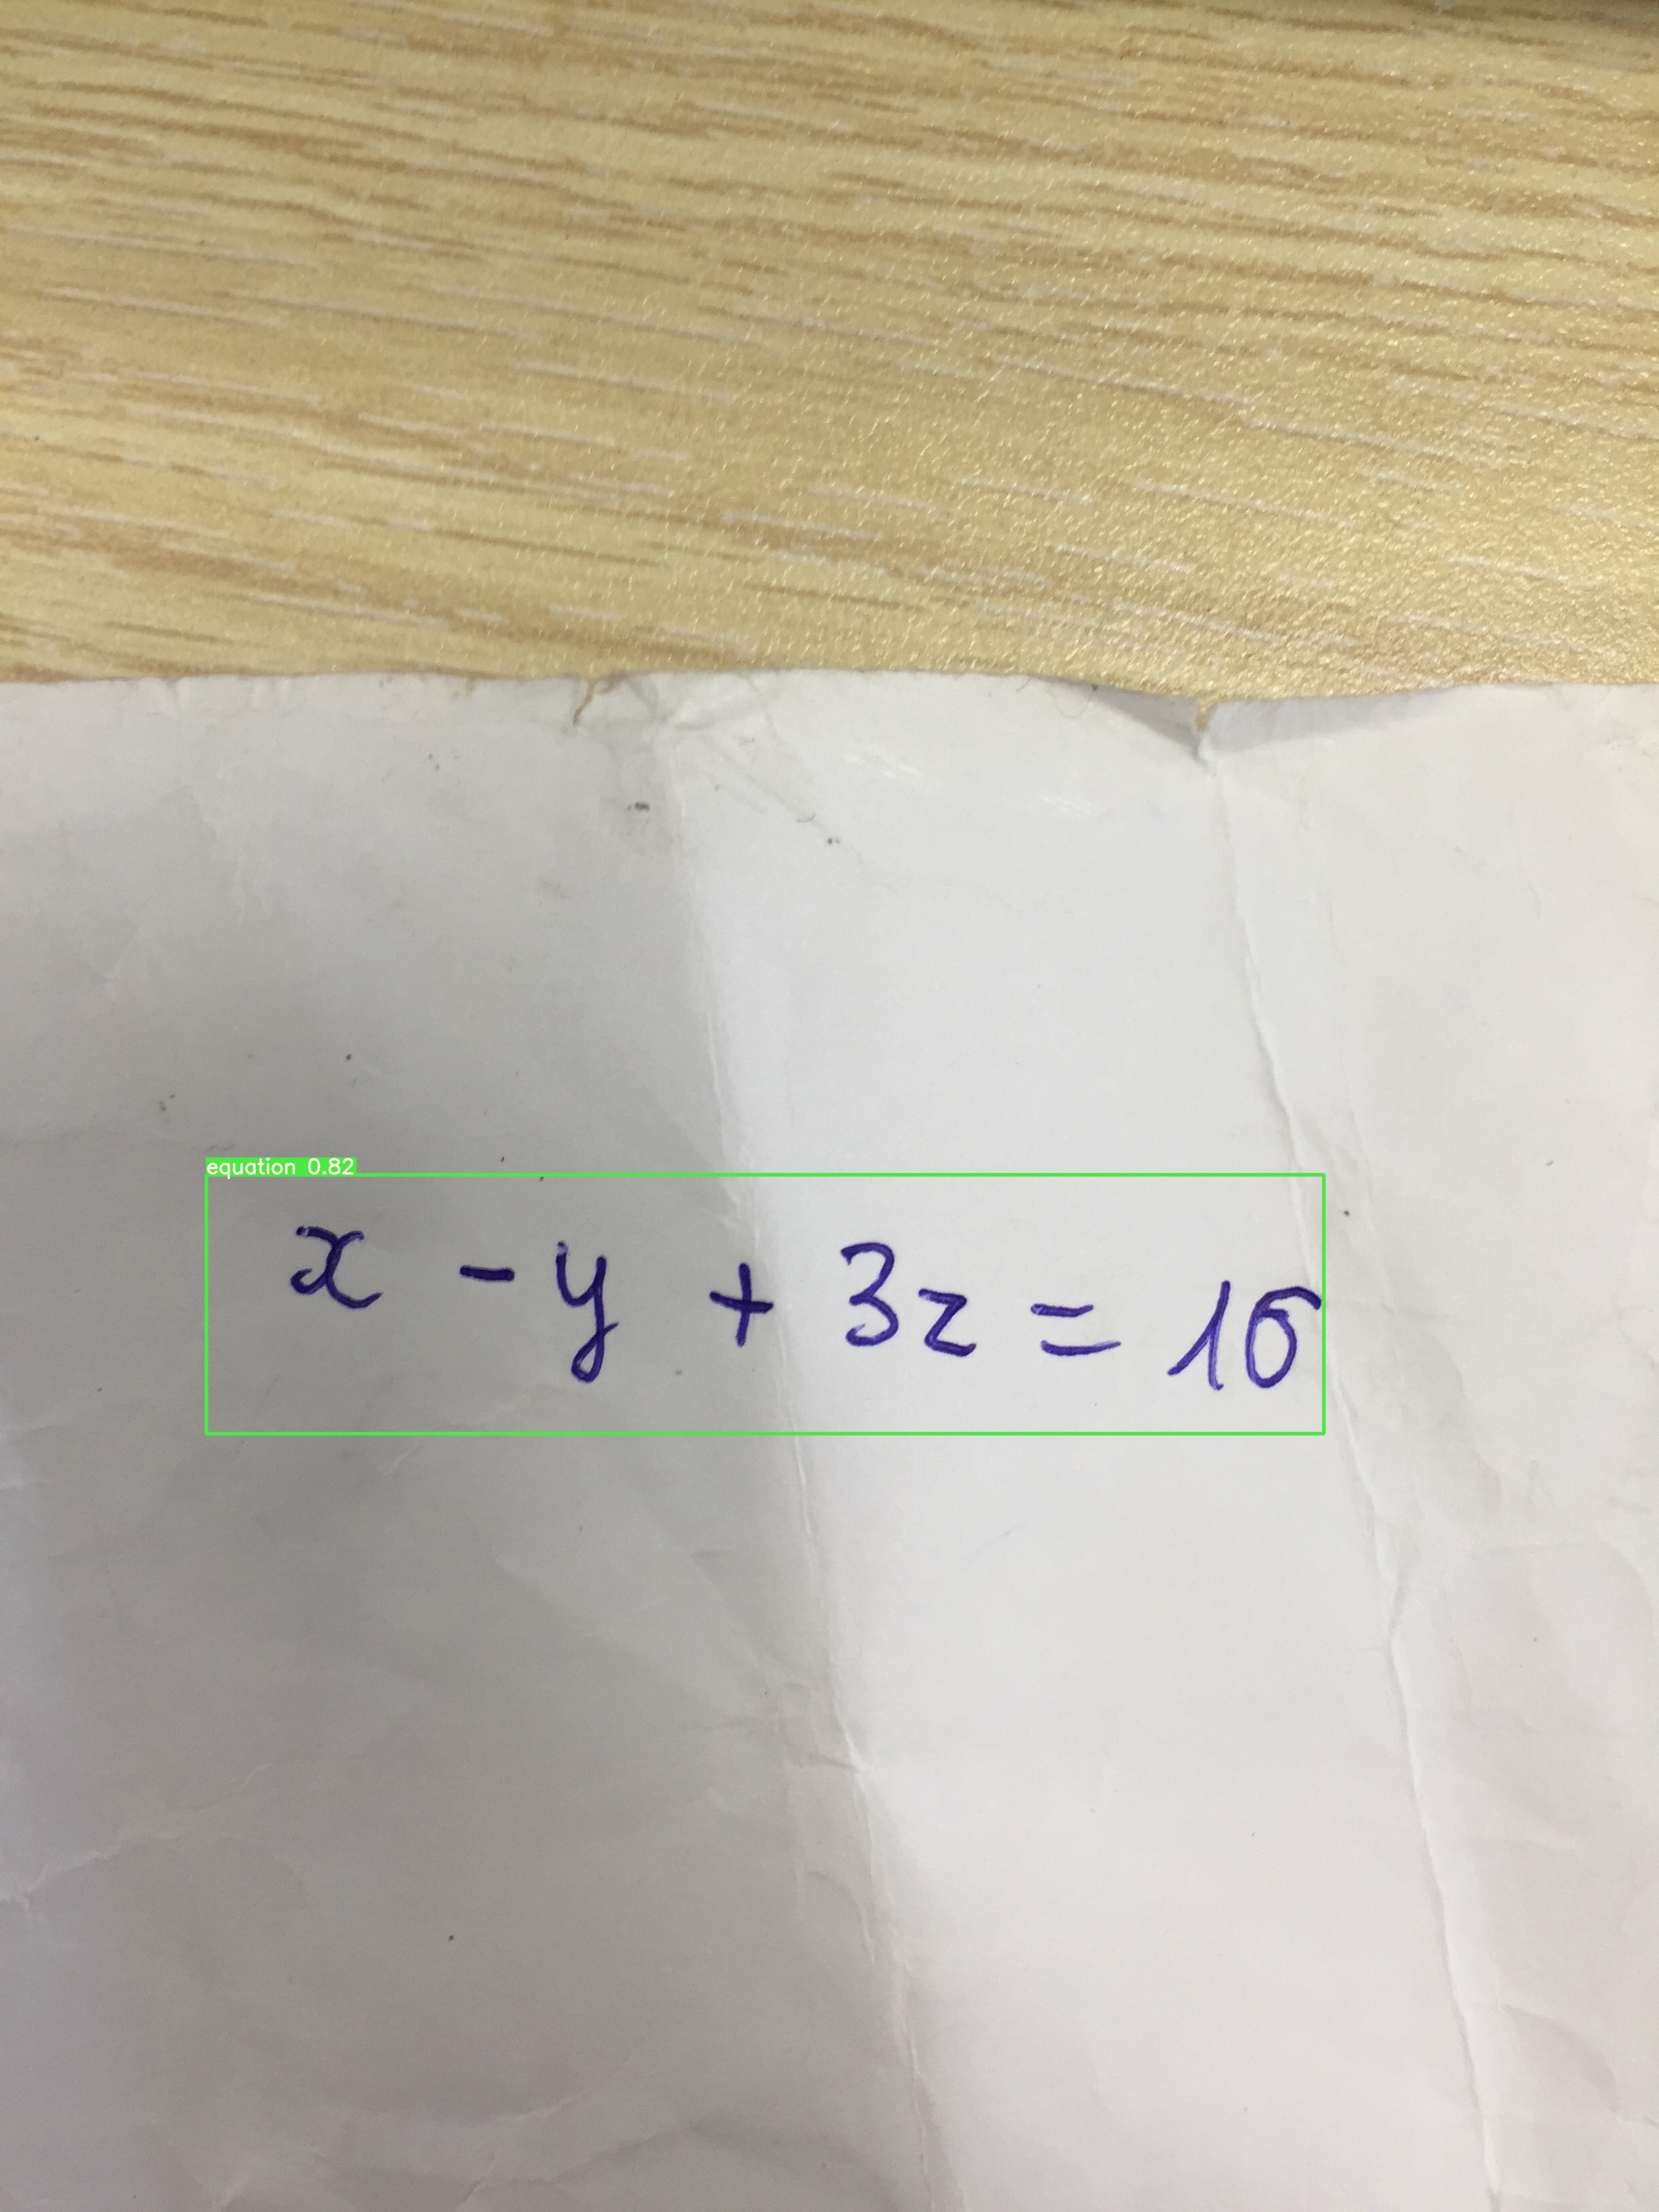 equation 0.82
x - y + 3z = 16